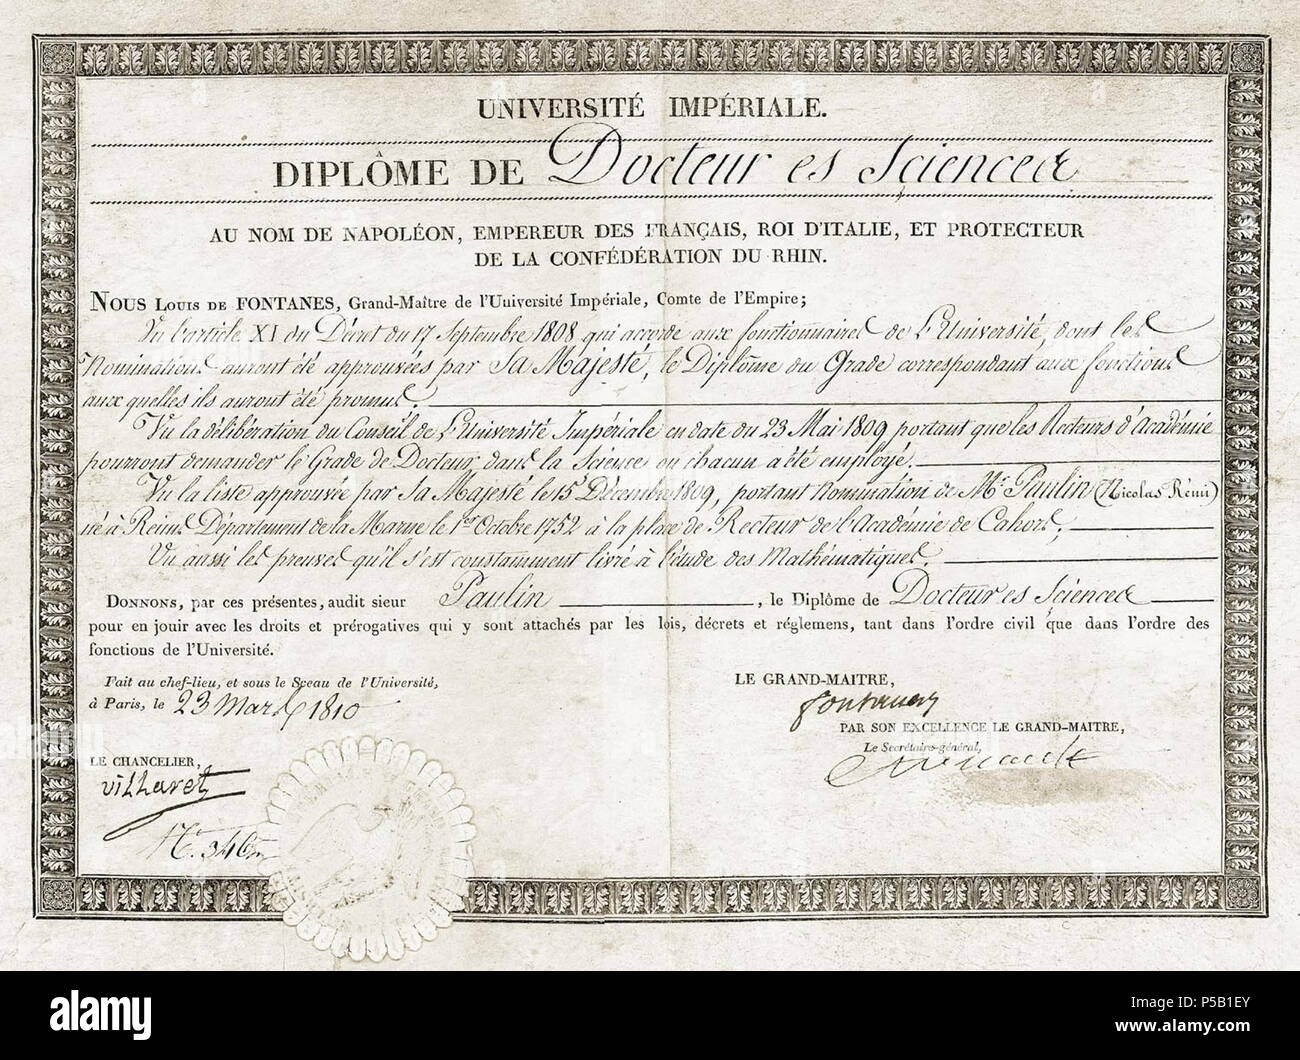 UNIVERSITÉ IMPÉRIALE.
DIPLÔME DE Docteur es Sciences
AU NOM DE NAPOLÉON, EMPEREUR DES FRANÇAIS, ROI D'ITALIE, ET PROTECTEUR
DE LA CONFÉDÉRATION DU RHIN.
NOUS LOUIS DE FONTANES, Grand-Maître de l'Université Impériale, Comte de l'Empire;
Vu l'article XI du Décret du 17 Septembre 1808 qui accorde aux fonctionnaires de l'Université, dont les
Nominations auront été approuvées par Sa Majesté, le Diplôme du Grade correspondant aux fonctions
aux quelles ils auront été promus.
Vu la délibération du Conseil de l'Université Impériale en date du 23 Mai 1809 portant que les Recteurs d'Académie
pourront demander le Grade de Docteur dans la Science ou chacun a été employé.
Vu la liste approuvée par Sa Majesté le 15 Décembre 1809, portant nomination de Mr. Paulin (Nicolas Rémi)
né à Reims Département de la Marne le 1er Octobre 1752 à la place de Recteur de l'Académie de Cahors,
Vu aussi les preuves qu'il s'est constamment livré à l'étude des Mathématiques.
DONNONS, par ces présentes, audit sieur Paulin, le Diplôme de Docteur es Sciences
pour en jouir avec les droits et prérogatives qui y sont attachés par les lois, décrets et réglemens, tant dans l'ordre civil que dans l'ordre des
fonctions de l'Université.
Fait au chef-lieu, et sous le Sceau de l'Université,
à Paris, le 23 Mars 1810
LE GRAND-MAITRE,
Fontanes
PAR SON EXCELLENCE LE GRAND-MAITRE,
Le Secrétaire-général,
LE CHANCELIER,
Villaret
alamy
Image ID: P5B1EY
www.alamy.com